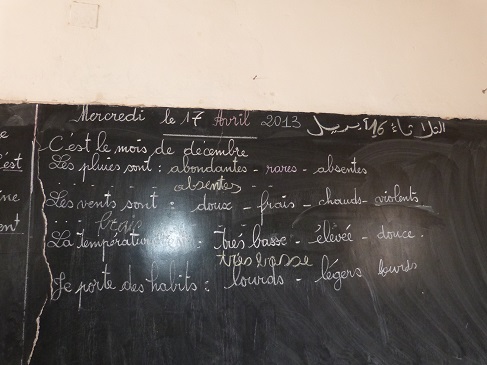 Mercredi le 17 Avril 2013 الثلاثاء 16 أبريل
C'est le mois de décembre
Les pluies sont : abondantes - rares - absentes
absentes
Les vents sont : doux - frais - chauds - violents
frais
La température : très basse - élevée - douce.
très basse
Je porte des habits : lourds - légers lourds
est
ine
ent